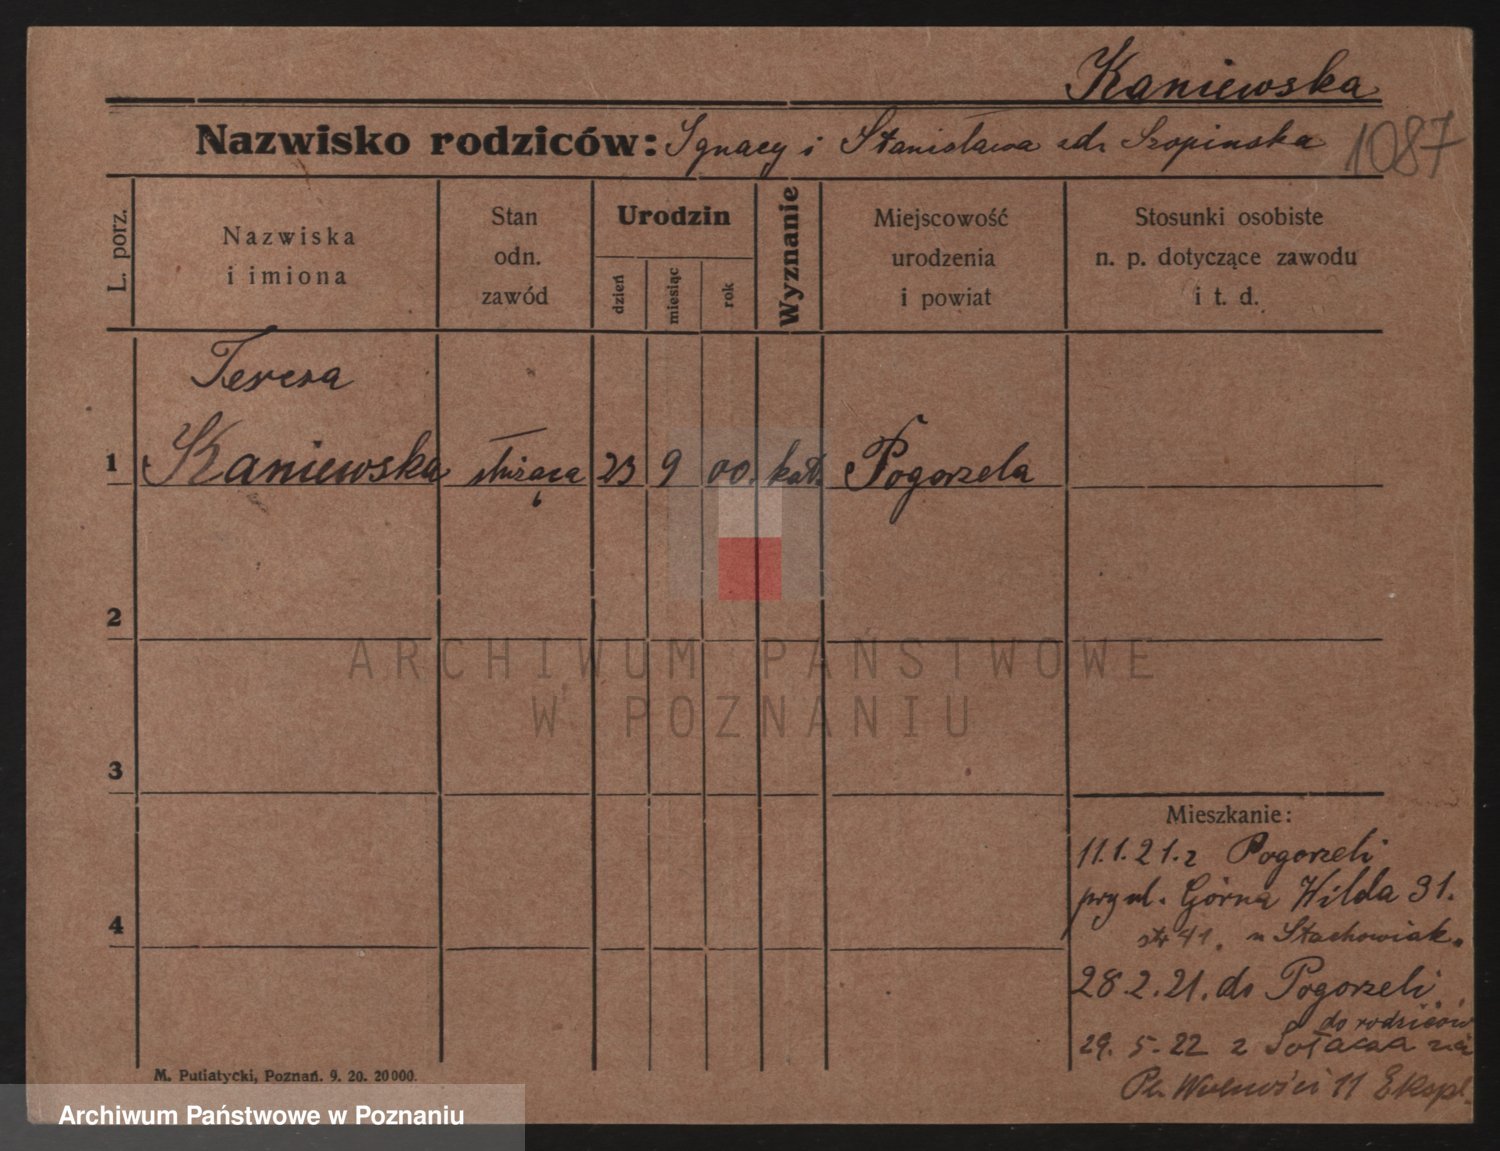 Kaniewska
Nazwisko rodziców: Ignacy i Stanisława zd. Szopinska 1087
L. porz.
Nazwiska
i imiona
Stan
odn.
zawód
Urodzin
dzień
miesiąc
rok
Wyznanie
Miejscowość
urodzenia
i powiat
Stosunki osobiste
n. p. dotyczące zawodu
i t. d.
Teresa
1 Kaniewska służąca 23 9 00. kat. Pogorzela
2
ARCHIWUM PAŃSTWOWE
W POZNANIU
3
Mieszkanie:
11.1.21. z Pogorzeli
przy ul. Górna Wilda 31.
str 41. u Stachowiak.
4
28.2.21. do Pogorzeli
do rodziców
29. 5. 22 z Sołacza
Pl. Wolności 11 Ekspl.
M. Putiatycki, Poznań. 9. 20. 20000.
Archiwum Państwowe w Poznaniu